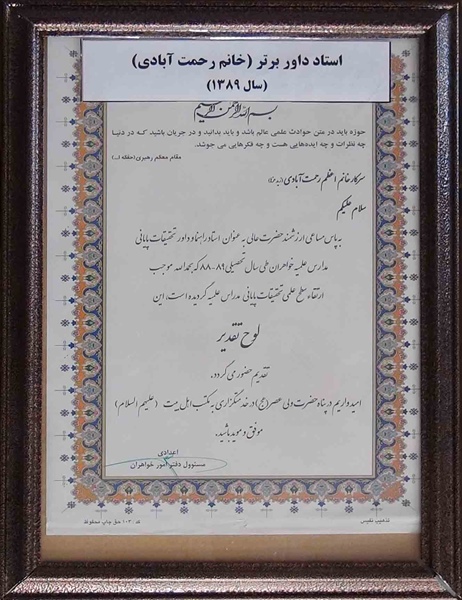 استاد داور برتر (خانم رحمت آبادی)
(سال ۱۳۸۹)
بسم الله الرحمن الرحیم
حوزه باید در متن حوادث علمی عالم باشد و باید بدانید و در جریان باشید که در دنیا
چه نظرات و چه ایده‌هایی هست و چه فکرهایی می جوشد.
مقام معظم رهبری (حفظه ا...)
سرکار خانم اعظم رحمت آبادی
سلام علیکم
به پاس مساعی ارزشمند حضرت عالی به عنوان استاد راهنما و داور تحقیقات پایانی
مدارس علمیه خواهران طی سال تحصیلی ۸۹-۸۸ که بحمدالله موجب
ارتقاء سطح علمی تحقیقات پایانی مدارس علمیه گردیده است، این
لوح تقدیر
تقدیم حضورتان می‌گردد.
امیدواریم در پناه حضرت ولی عصر (عج) در خدمتگزاری به مکتب اهل بیت (علیهم السلام)
موفق و موید باشید.
اعدادی
مسوول دفتر امور خواهران
تذهیب نفیس
کد: ۱۰۳ حق چاپ محفوظ